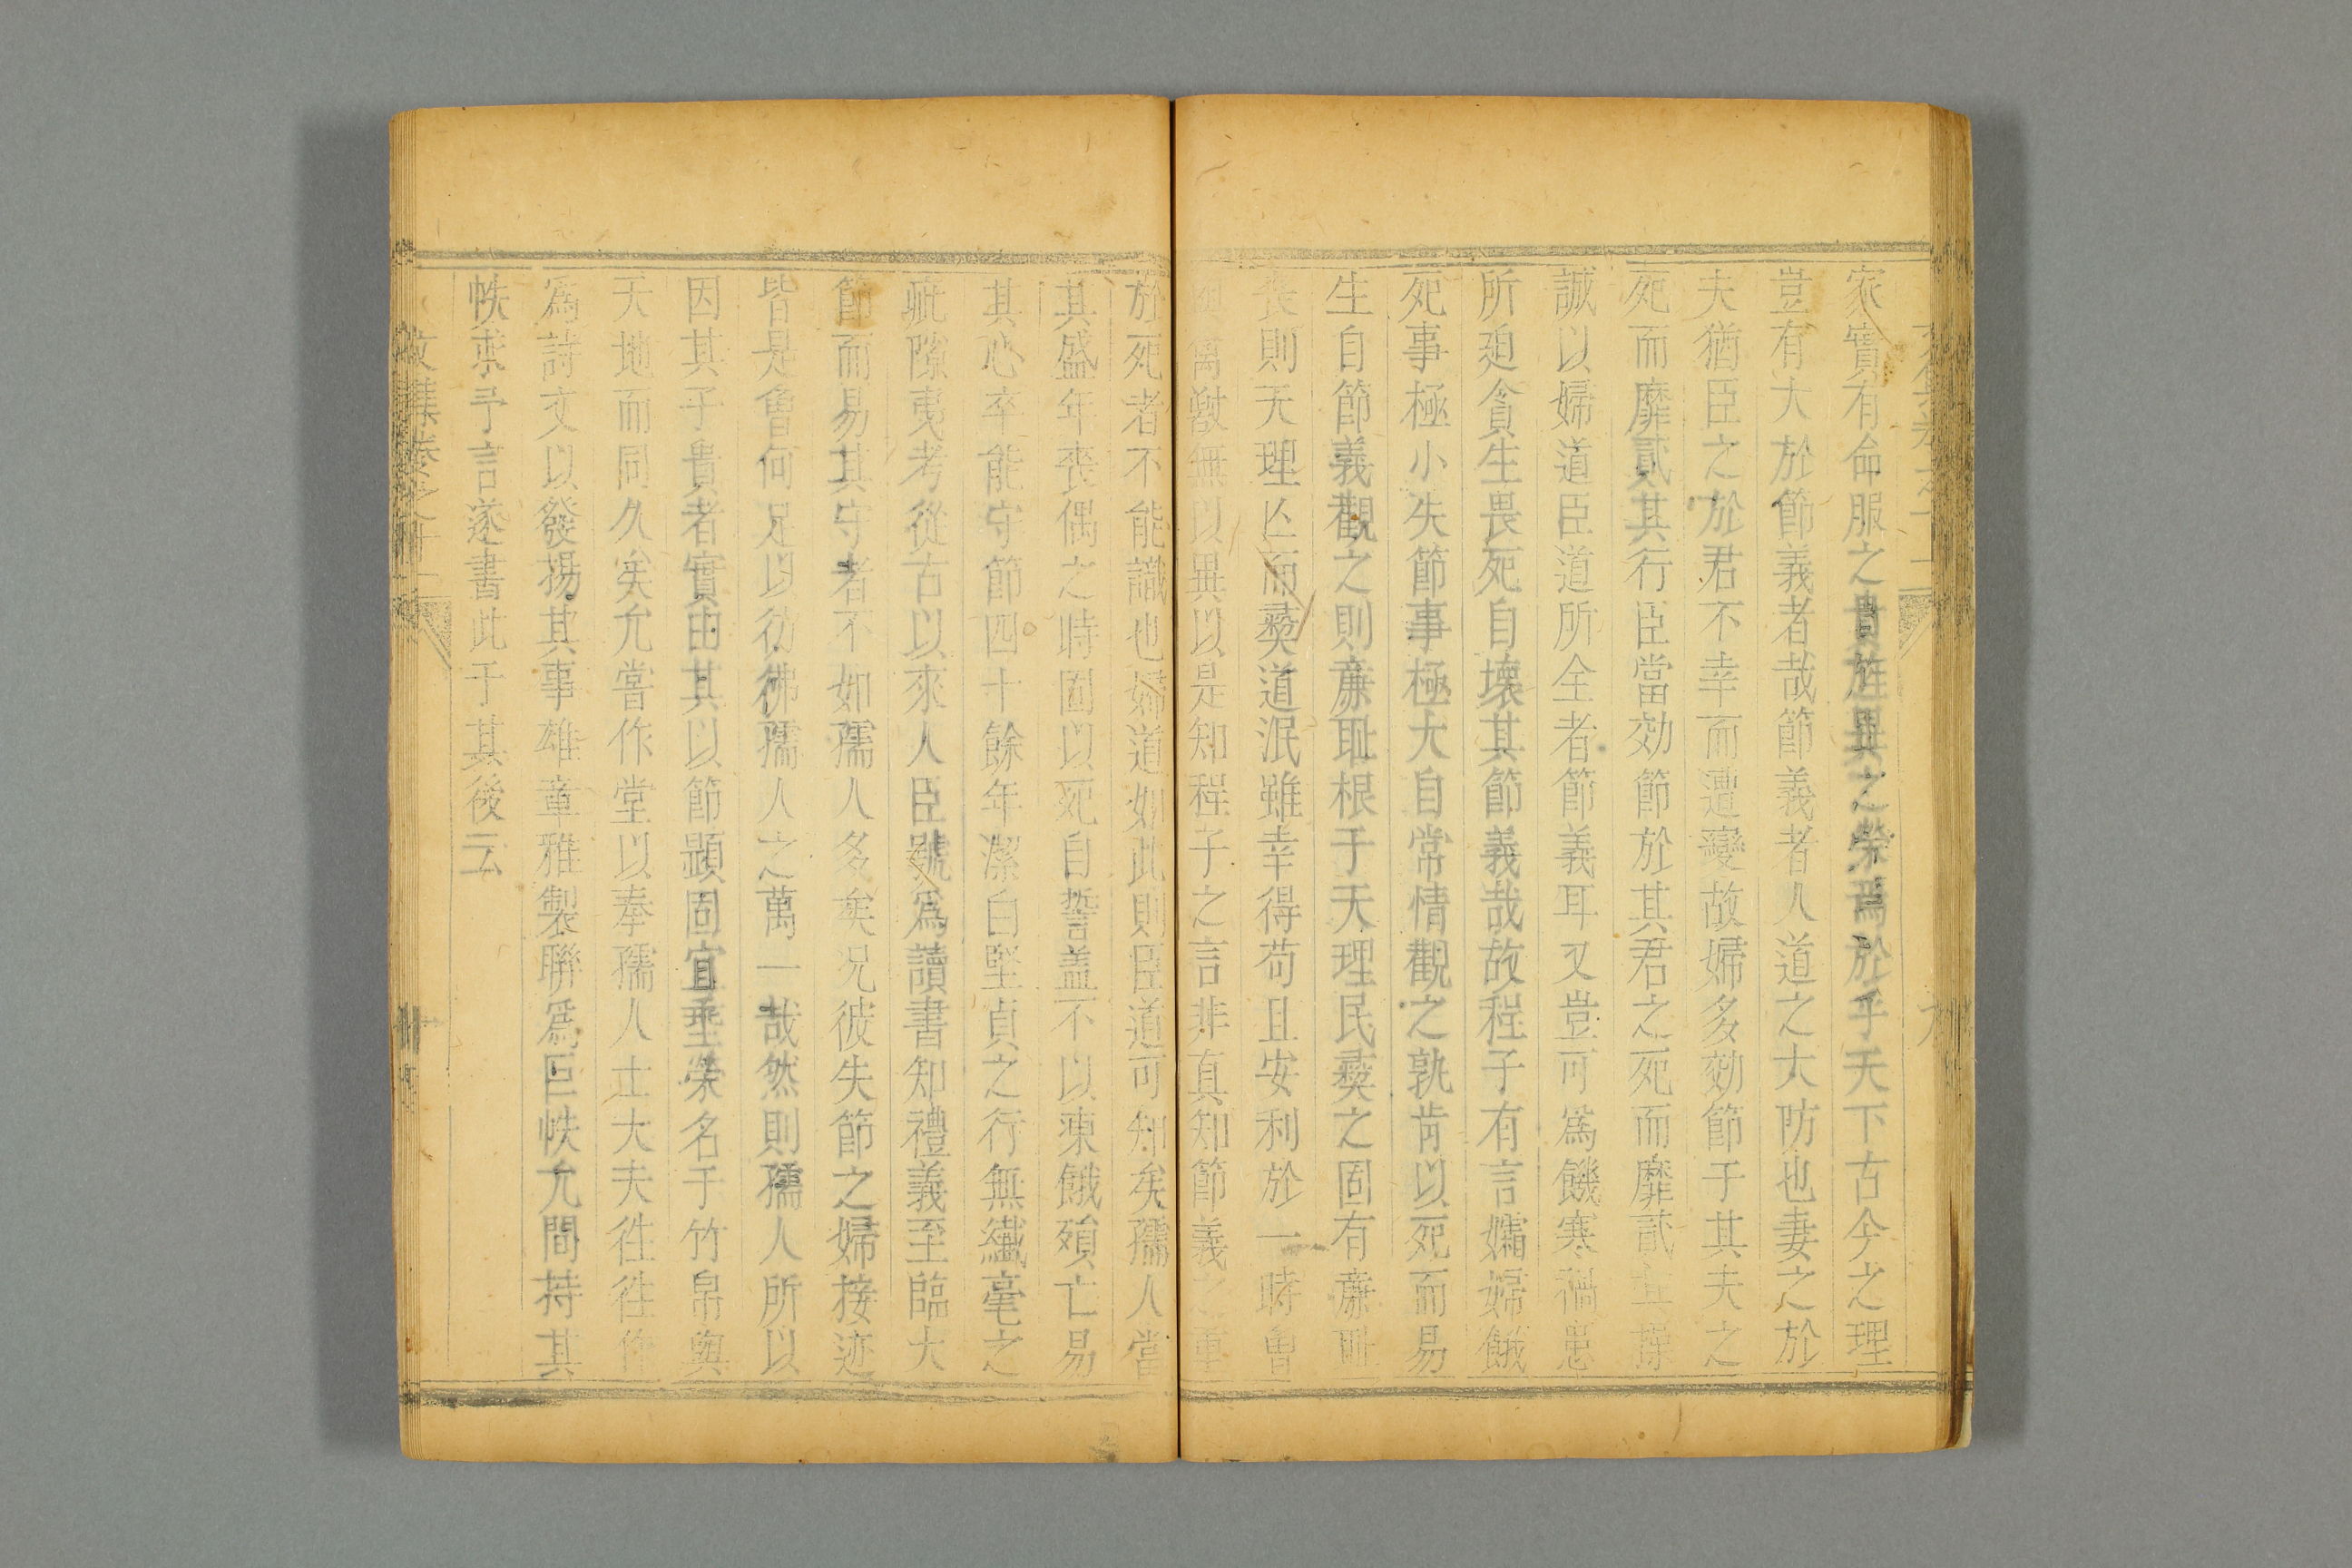 家實有命服之貴旌異之榮焉於乎天下古今之理
豈有大於節義者哉節義者人道之大防也妻之於
夫猶臣之於君不幸而遭變故婦多効節于其夫之
死而靡貳其行臣當効節於其君之死而靡貳其操
誠以婦道臣道所全者節義耳又豈可爲饑寒禍患
所廹貪生畏死自壞其節義哉故程子有言孀婦餓
死事極小失節事極大自常情觀之孰肯以死而易
生自節義觀之則亷耻根于天理民彜之固有亷耻
喪則天理亾而彜道泯雖幸得苟且安利於一時曽
與禽獸無以異以是知程子之言非真知節義之重
於死者不能識也婦道如此則臣道可知矣孺人當
其盛年喪偶之時固以死自誓盖不以凍餓殞亡易
其心卒能守節四十餘年潔白堅貞之行無纎毫之
疵隙夷考從古以來人臣號爲讀書知禮義至臨大
節而易其守者不如孺人多矣况彼失節之婦接迹
皆是曾何足以彷彿孺人之萬一哉然則孺人所以
因其子貴者實由其以節顕固宜垂榮名于竹帛與
天地而同久矣允嘗作堂以奉孺人士大夫徃徃作
爲詩文以發揚其事雄章雅製聯爲巨帙允間持其
帙求予言遂書此于其後云